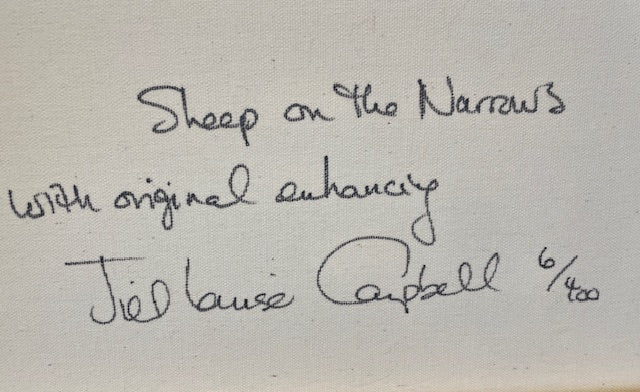 Sheep on the Narrows
with original enhancing
Jill Louise Campbell 6/400